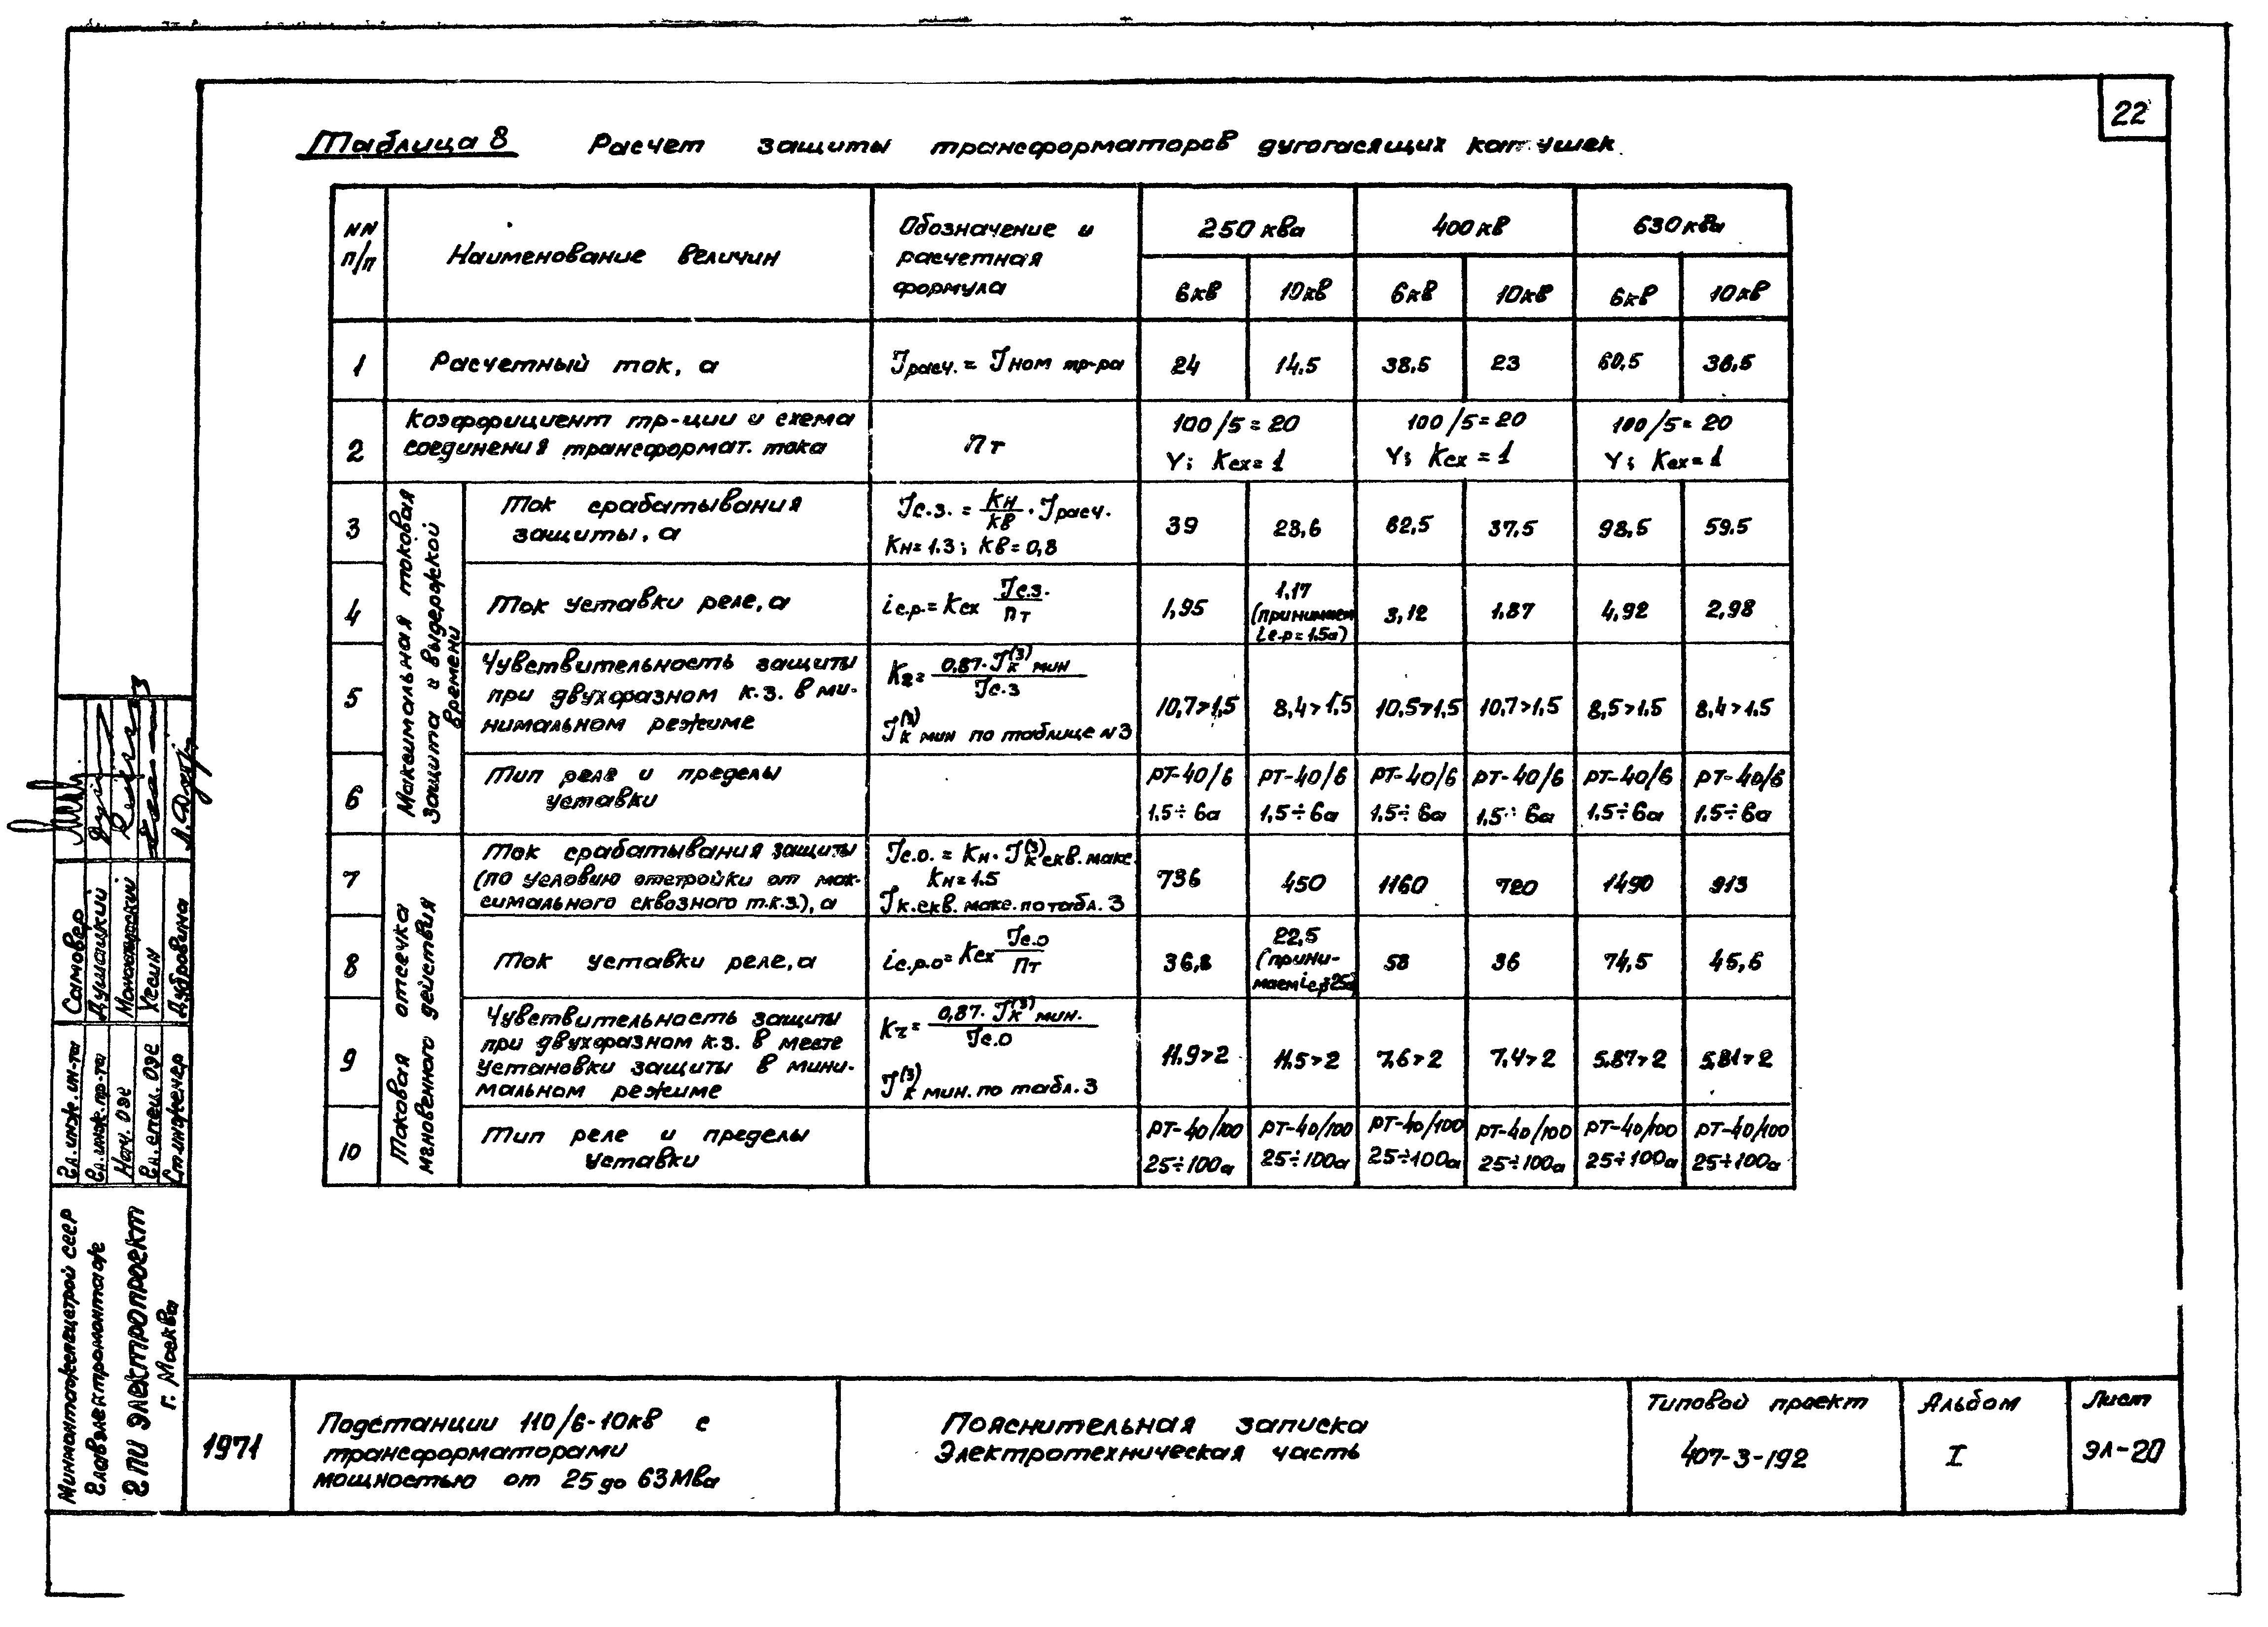 22
Таблица 8 Расчет защиты трансформаторов дугогасящих катушек
NN п/п
Наименование величин
Обозначение и расчетная формула
250 ква 400 кв 630 ква
6кв 10кв 6кв 10кв 6кв 10кв
1 Расчетный ток, а Jрасч. = Jном тр-ра 24 14.5 38.5 23 60,5 36.5
2 Коэффициент тр-ции и схема соединения трансформат. тока Пт 100/5=20 Y; Kсх=1 100/5=20 Y; Kсх=1 100/5=20 Y; Kсх=1
Максимальная токовая защита с выдержкой времени
3 Ток срабатывания защиты, а Jс.з. = Kн/Kв · Jрасч. Kн=1.3; Kв=0,8 39 23,6 62,5 37,5 98,5 59.5
4 Ток уставки реле, а iс.р.= Kсх Jс.з./Пт 1,95 1,17 (принимаем iс.р=1.5а) 3,12 1.87 4,92 2,98
5 Чувствительность защиты при двухфазном к.з. в минимальном режиме Kч= 0.87·Jк(3) мин / Jс.з Jк(3) мин по таблице N3 10,7>1,5 8,4>1,5 10,5>1,5 10,7>1,5 8,5>1.5 8,4>1.5
6 Тип реле и пределы уставки РТ-40/6 1.5÷6а РТ-40/6 1,5÷6а РТ-40/6 1.5÷6а РТ-40/6 1.5÷6а РТ-40/6 1.5÷6а РТ-40/6 1.5÷6а
Токовая отсечка мгновенного действия
7 Ток срабатывания защиты (по условию отстройки от максимального сквозного т.к.з.), а Jс.о.= Kн·Jк(3) скв. макс. Kн=1.5 Jк.скв. макс. по табл. 3 736 450 1160 720 1490 913
8 Ток уставки реле, а iс.р.о= Kсх Jс.о/Пт 36,8 22,5 (принимаем iс.р=25а) 58 36 74,5 45,6
9 Чувствительность защиты при двухфазном к.з. в месте установки защиты в минимальном режиме Kч= 0,87·Jк(3) мин. / Jс.о Jк(3) мин. по табл. 3 11.9>2 11.5>2 7,6>2 7,4>2 5.87>2 5,81>2
10 Тип реле и пределы уставки РТ-40/100 25÷100а РТ-40/100 25÷100а РТ-40/100 25÷100а РТ-40/100 25÷100а РТ-40/100 25÷100а РТ-40/100 25÷100а
Гл. инж. ин-та Самовер
Гл. инж. пр-та Душацкий
Нач. ОЭС
Гл. спец. ОЭС Хесин
Ст. инженер Дубровина
Минмонтажспецстрой СССР
Главэлектромонтаж
ГПИ Электропроект
г. Москва
1971
Подстанции 110/6-10кв с
трансформаторами
мощностью от 25 до 63 Мва
Пояснительная записка
Электротехническая часть
Типовой проект
407-3-192
Альбом
I
Лист
ЭЛ-20